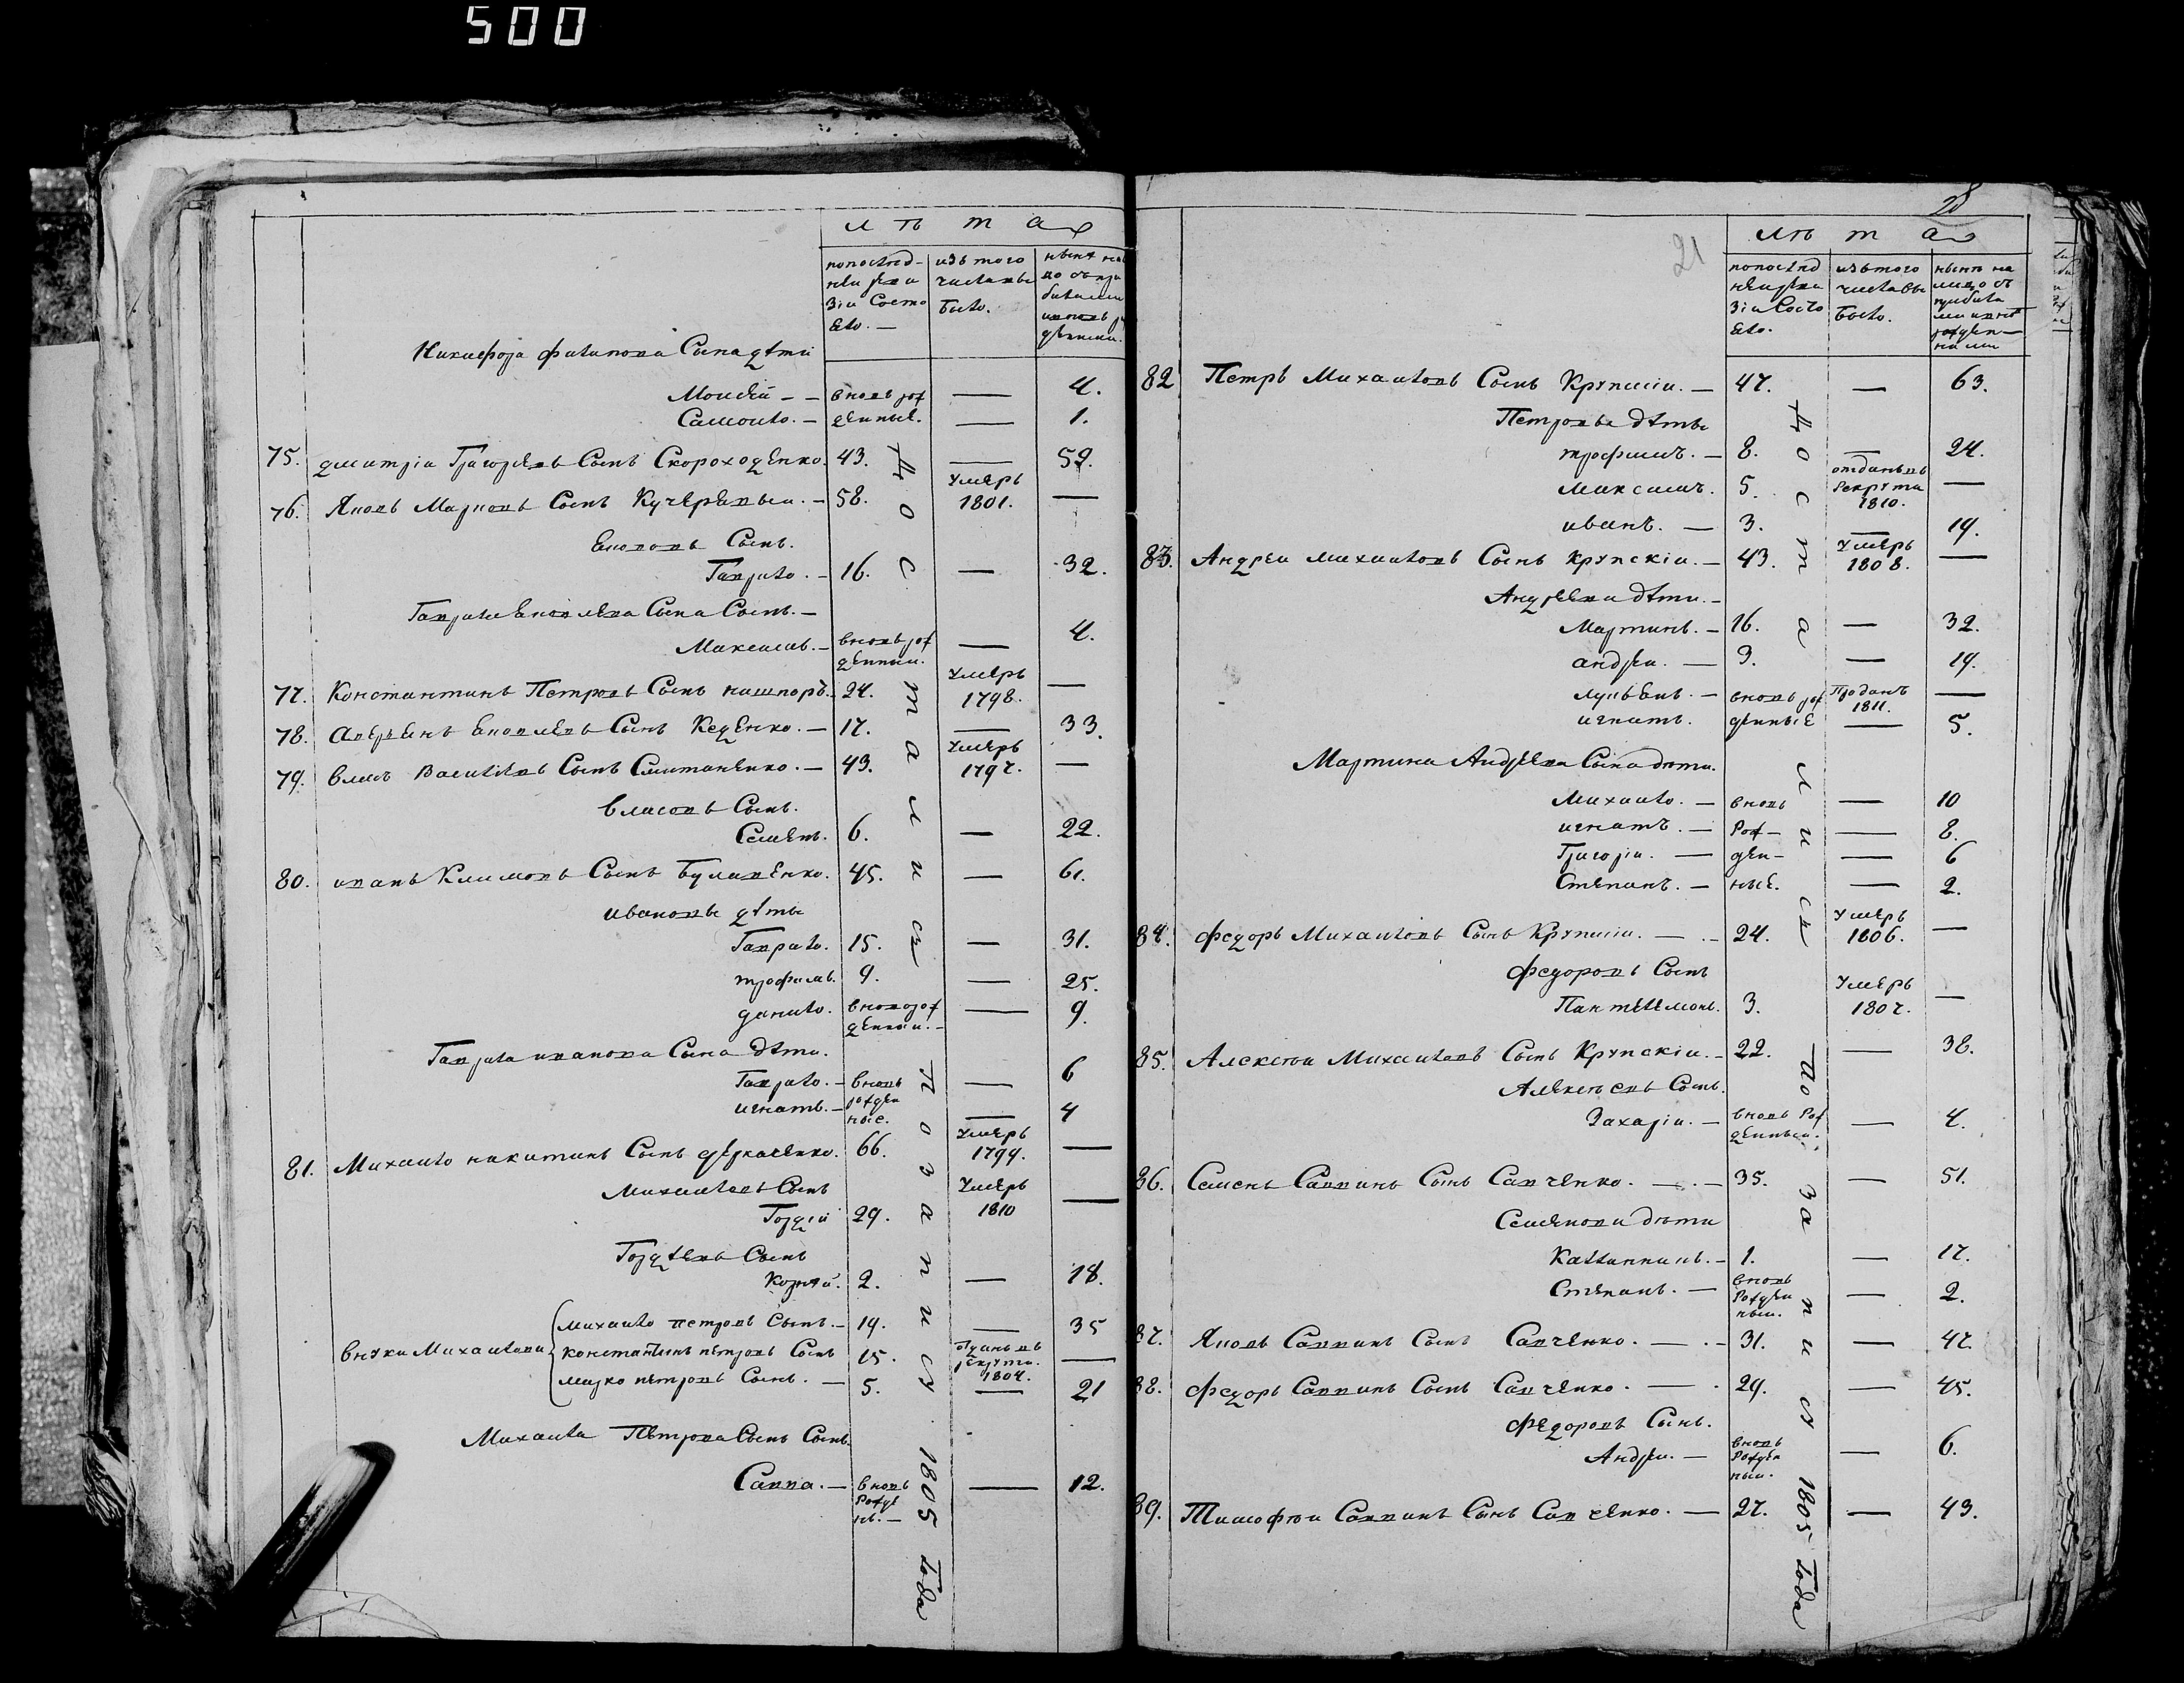 500
лѣта
попослѣд-
неи реви
зіи Состо
яло. —
изъ того
числа вы
было.
Никифора филипова Сына дѣти
Моисей — вновь рож 4.
Самоило. — денные. 1.
75. дмитріи Григорьевъ Сынъ Скороходенко. 43. — 59.
76. Яковъ Марковъ Сынъ Кучерявыи. — 58. умеръ 1801. —
Яковъ Сынъ.
Гаврило. — 16. — 32.
Гаврила Яковлева Сына Сынъ. —
Максимъ. — вновь рож
денныи. — 4.
77. Константинъ Петровъ Сынъ 24. умеръ 1798. —
78. Аверъянъ Яковлевъ Сынъ 17. — 33.
79. власъ Васильевъ Сынъ Смитаненко. — 43. умеръ 1797. —
власовъ Сынъ.
Семенъ. 6. — 22.
80. иванъ Климовъ Сынъ Булавенко. 45. — 61.
ивановы дѣти
Гаврило. 15. — 31.
трофимъ. 9. — 25.
данило. вноворож
денныи. — 9.
Гаврила иванова Сына дѣти.
Гаврило. — вновь — 6
игнатъ. — рожден
ные. — 4
81. Михаило никитинъ Сынъ деркаченко. 66. умеръ 1799. —
Михаиловъ Сынъ
Гордѣй 29. умеръ 1810 —
Гордѣевъ Сынъ
Корнѣй. 2. — 18.
внуки Михаиловы
михаило петровъ Сынъ. — 19. — 35
константинъ петровъ Сынъ 15. отданъ въ рекруты. 1804. —
марко петровъ Сынъ. — 5. — 21
Михаила Петрова Сынъ Сынъ.
Савва. — вновь
рожде
нъ. — — 12.
Достались
по
записъ
1805 Года
28
21
лѣта
попослѣд
неи реви
зіи Состо
яло.
изъ того
числа вы
было.
нынѣ на
лицо съ
прибыла
ми и новь
рожден—
на ми
82 Петръ Михаиловъ Сынъ Крупскіи. — 47. — 63.
Петровы дѣты
трофимъ. — 8. — 24.
максимъ. 5. отданъ въ
Рекруты
1810. —
иванъ. — 3. — 19.
83. Андреи михаиловъ Сынъ крупскіи. — 43. умеръ 1808. —
Андреева дѣти. —
Мартинъ. — 16. — 32.
андреи. — 3. — 19.
лукъянъ. — вновь рож Проданъ 1811. —
игнатъ. денные — 5.
Мартина Андреева Сына дѣти.
Михаило. — вновь — 10
игнатъ. — Рож— — 8.
Григоріи. — ден— — 6
Степанъ. — ные. — 2.
84. федоръ Михаиловъ Сынъ Крупскіи. — 24. умеръ 1806. —
федоровъ Сынъ
Пантелемонъ. 3. умеръ 1807. —
85. Алексѣи Михаиловъ Сынъ Крупскіи. — 22. — 38.
Алексѣевъ Сынъ.
Захаріи. — вновь Рож
денныи. — 4.
86. Семенъ Саввинъ Сынъ Савченко. — 35. — 51.
Семенова дѣти
1. — 17.
Степанъ. — вновь
Рожден
ныи. — 2.
87. Яковъ Саввинъ Сынъ Савченко. — 31. — 47.
88. федоръ Саввинъ Сынъ Савченко. — 29. — 45.
федоровъ Сынъ.
Андреи. — вновь
Рожден
ныи. — 6.
89. Тимофѣи Саввинъ Сынъ Савченко. — 27. — 43.
Достались
по
записъ
1805 Года